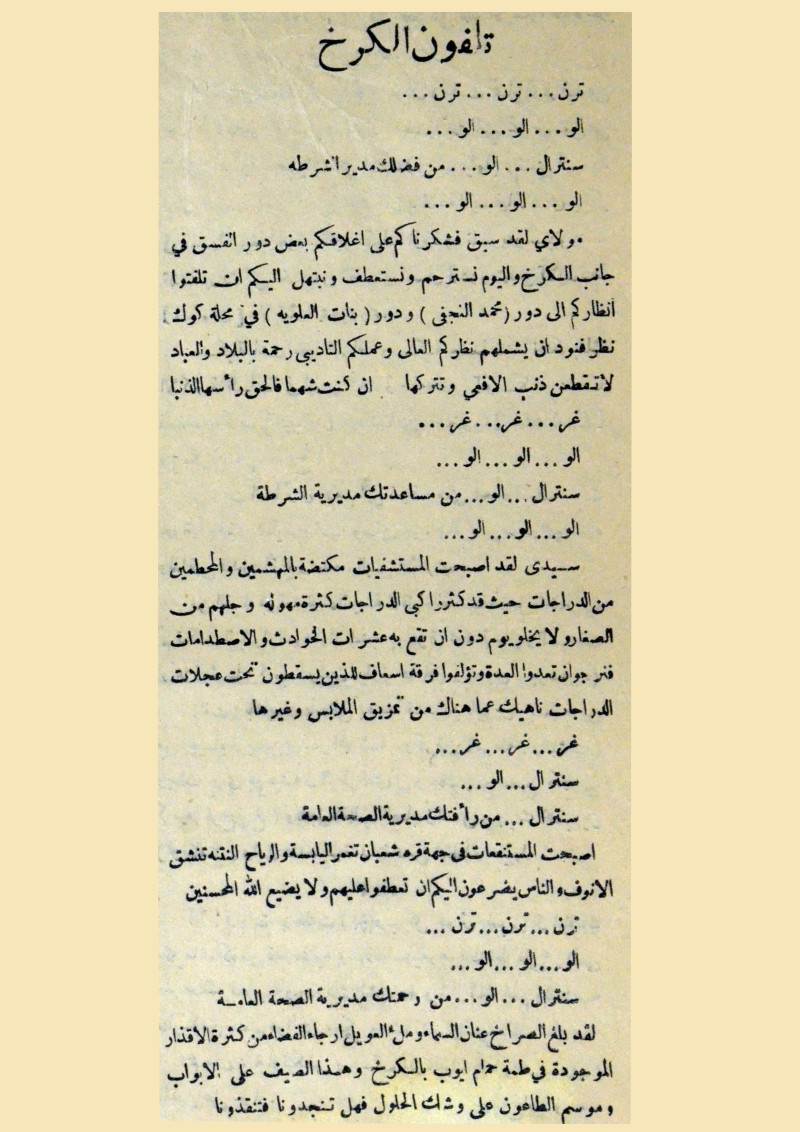 تلفون الكرخ
ترن... ترن... ترن...
الو... الو... الو...
سنترال... الو... من فضلك مدير الشرطه
الو... الو... الو...
مولاي لقد سبق فشكرناكم على اغلاقكم بعض دور الفسق في
جانب الكرخ واليوم نسترحم ونستعطف ونبتهل اليكم ان تلفتوا
انظاركم الى دور (محمد النجفى) ودور (بنات العلويه) في محلة كوك
نظر فنود ان يشملهم نظركم العالى وعملكم التاديبى رحمة بالبلاد والعباد
لاتقطعن ذنب الافعي وتتركها ان كنت شهما فالحق رأسها الذنبا
غر... غر... غر...
الو... الو... الو...
سنترال... الو... من مساعدتك مديرية الشرطة
الو... الو... الو...
سيدى لقد اصبحت المستشفيات مكتضة بالمهشمين والمحطمين
من الدراجات حيث قد كثر راكبى الدراجات كثرة مهوله وجلهم من
الصغار ولا يخلو يوم دون ان تقع به عشرات الحوادث والاصطدامات
فنرجوان تعدوا العدة وتؤلفوا فرقة اسعاف للذين يسقطون تحت عجلات
الدراجات ناهيك عما هناك من تمزيق الملابس وغيرها
غر... غر... غر...
سنترال... الو...
سنترال... من رأفتك مديرية الصحة العامة
اصبحت المستنقعات فى جهة قره شعبان تغمر اليابسة والرياح النتنه تنشق
الانوف والناس يضرعون اليكم ان تعطفوا عليهم ولا يضيع الله المحسنين
ترن... ترن... ترن...
الو... الو... الو...
سنترال... الو... من رحمتك مديرية الصحة العامة
لقد بلغ الصراخ عنان السماء وملء العويل ارجاء الفضاء من كثرة الاقذار
الموجودة في طمة حمام ايوب بالكرخ وهذا الصيف على الابواب
وموسم الطاعون على وشك الحلول فهل تنجدونا فتنقذونا